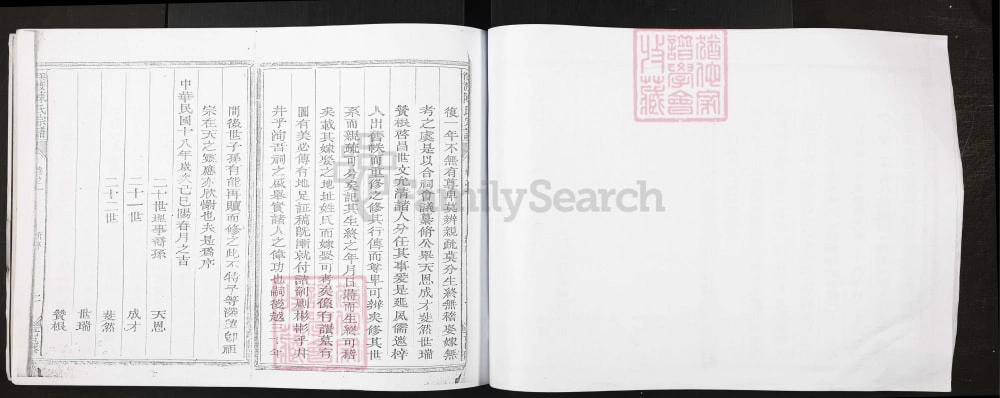 復一年不無有尊卑莫辨親疏莫分生終無稽娶嫁無
考之處是以合祠會議纂脩公舉天恩成才斐然世瑞
贊根啓昌世文允清諸人分任其事爰是延風儒邀梓
人出舊帙而重修之修其行傳而尊卑可辨矣修其世
系而親疏可分矣記其生終之年月日時而生終可稽
矣載其嫁娶之地址姓氏而嫁娶可考矣像有讚墓有
圖有美必傳有地足証稿既漸就付諸剞劂彬彬乎井
井乎洵吾祠之盛舉實諸人之偉功也嗣後越 年
間後世子孫有能再續而修之此不特予等深望即祖
宗在天之靈應亦欣慰也夫是為序
中華民國十八年歲次己巳陽春月之吉
二十世理事裔孫 天恩
二十一世 成才
二十二世 斐然
世瑞
贊根
陳氏宗譜
FamilySearch